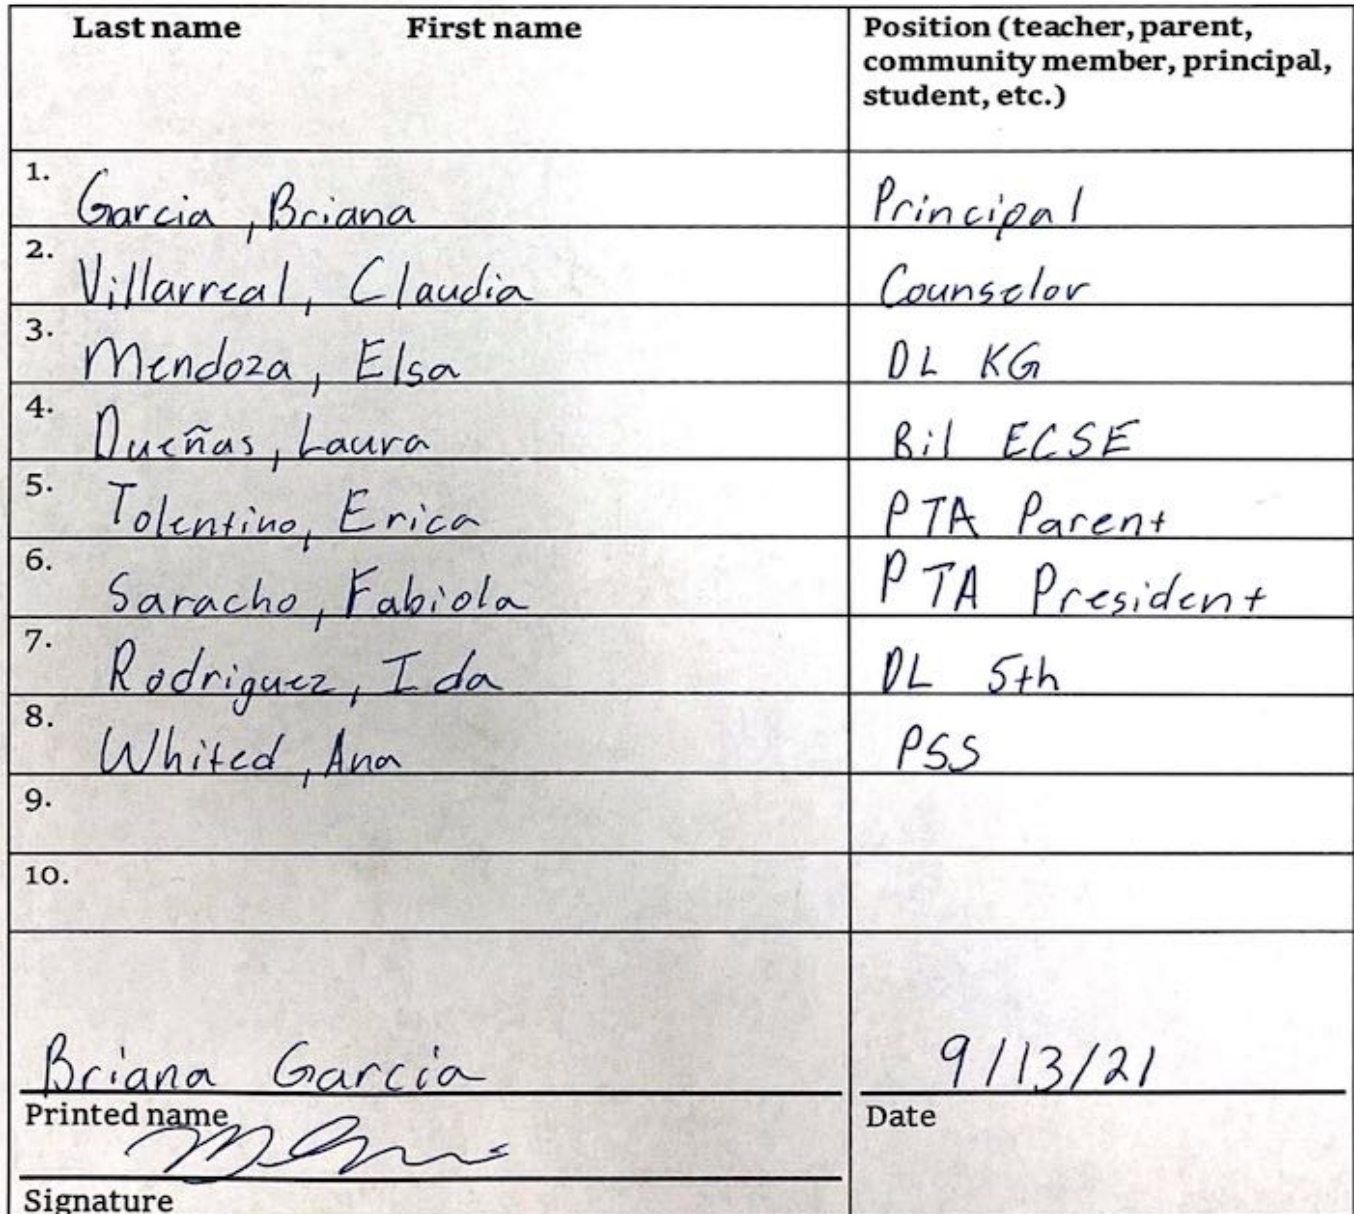 Last name First name
Position (teacher, parent,
community member, principal,
student, etc.)
1. Garcia, Briana Principal
2. Villarreal, Claudia Counselor
3. Mendoza, Elsa DL KG
4. Dueñas, Laura Bil ECSE
5. Tolentino, Erica PTA Parent
6. Saracho, Fabiola PTA President
7. Rodriguez, Ida DL 5th
8. Whited, Ana PSS
9.
10.
Briana Garcia 9/13/21
Printed name Date
Signature